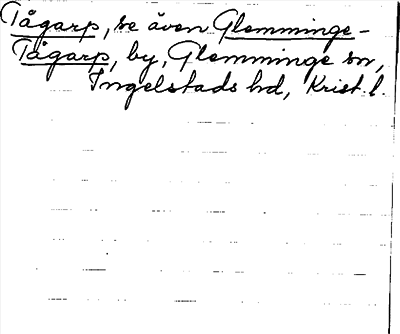 Tågarp, se även Glemminge-
Tågarp, by, Glemminge sn,
Ingelstads hd, Krist. l.